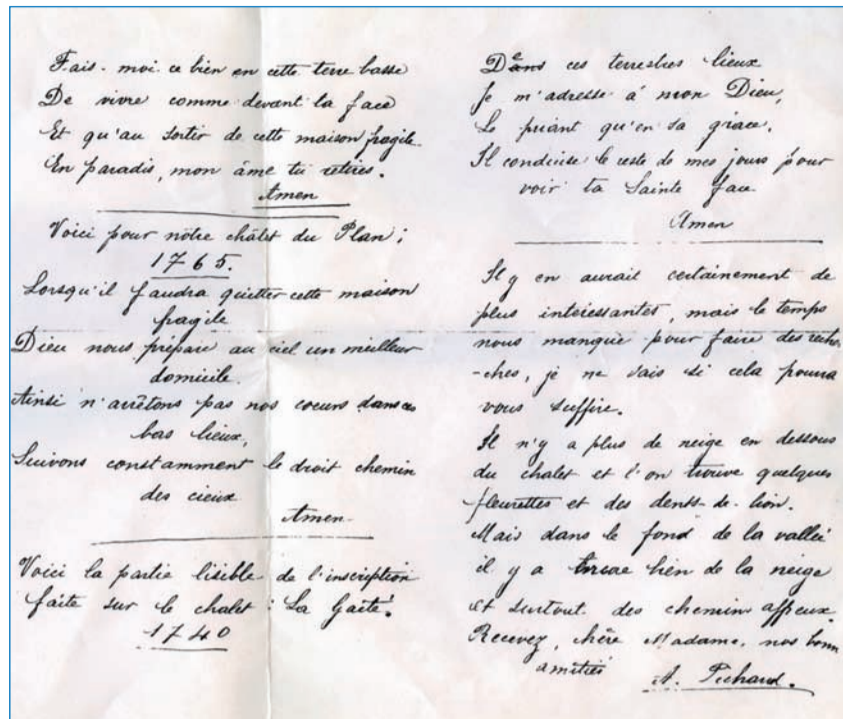 Fais-moi ce bien en cette terre basse
De vivre comme devant ta face
Et qu'au sortir de cette maison fragile
En paradis, mon âme tu retires.
Amen
Voici pour nôtre châlet du Plan;
1765.
Lorsqu'il faudra quitter cette maison
fragile
Dieu nous prépare au ciel un meilleur
domicile.
Ainsi n'arrêtons pas nos coeurs dans ces
bas lieux,
Suivons constamment le droit chemin
des cieux
Amen
Voici la partie lisible de l'inscription
faite sur le chalet: La Gaîté.
1740
De ces terrestres lieux
Je m'adresse à mon Dieu,
Le priant qu'en sa grâce,
Il conduise le reste de mes jours pour
voir ta Sainte face
Amen
Il y en aurait certainement de
plus intéressantes, mais le temps
nous manque pour faire des recher-
-ches, je ne sais si cela pourra
vous suffire.
Il n'y a plus de neige en dessous
du chalet et l'on trouve quelques
fleurettes et des dents-de-lion.
Mais dans le fond de la vallée
il y a encore bien de la neige
et surtout des chemins affreux.
Recevez, chère Madame, nos bonnes
amitiés
A. Pichard.